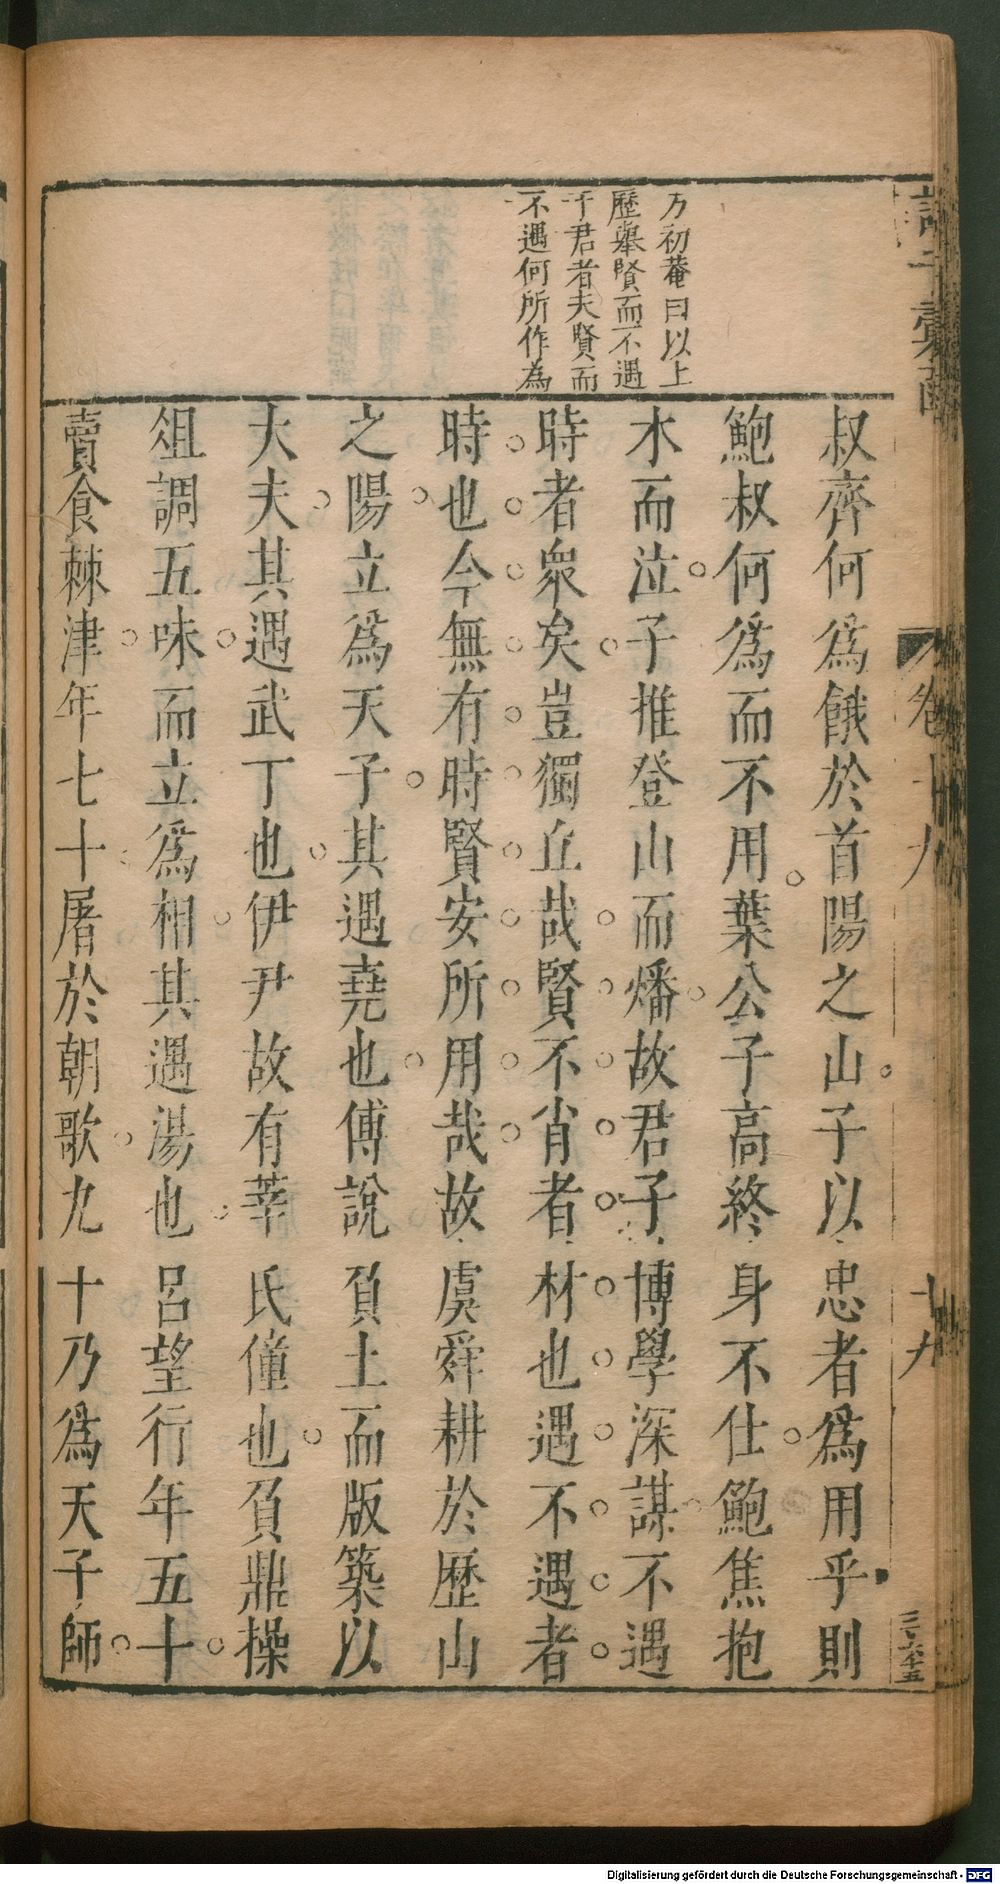 方初菴曰以上
歷舉賢而不遇
于君者夫賢而
不遇何所作為
叔齊何爲餓於首陽之山子以忠者爲用乎則
鮑叔何爲而不用葉公子高終身不仕鮑焦抱
木而泣子推登山而燔故君子博學深謀不遇
時者衆矣豈獨丘哉賢不肖者材也遇不遇者
時也今無有時賢安所用哉故虞舜耕於歷山
之陽立爲天子其遇堯也傅說負土而版築以
大夫其遇武丁也伊尹故有莘氏僮也負鼎操
俎調五味而立爲相其遇湯也呂望行年五十
賣食棘津年七十屠於朝歌九十乃爲天子師
卷十九
十九
Digitalisierung gefördert durch die Deutsche Forschungsgemeinschaft - DFG